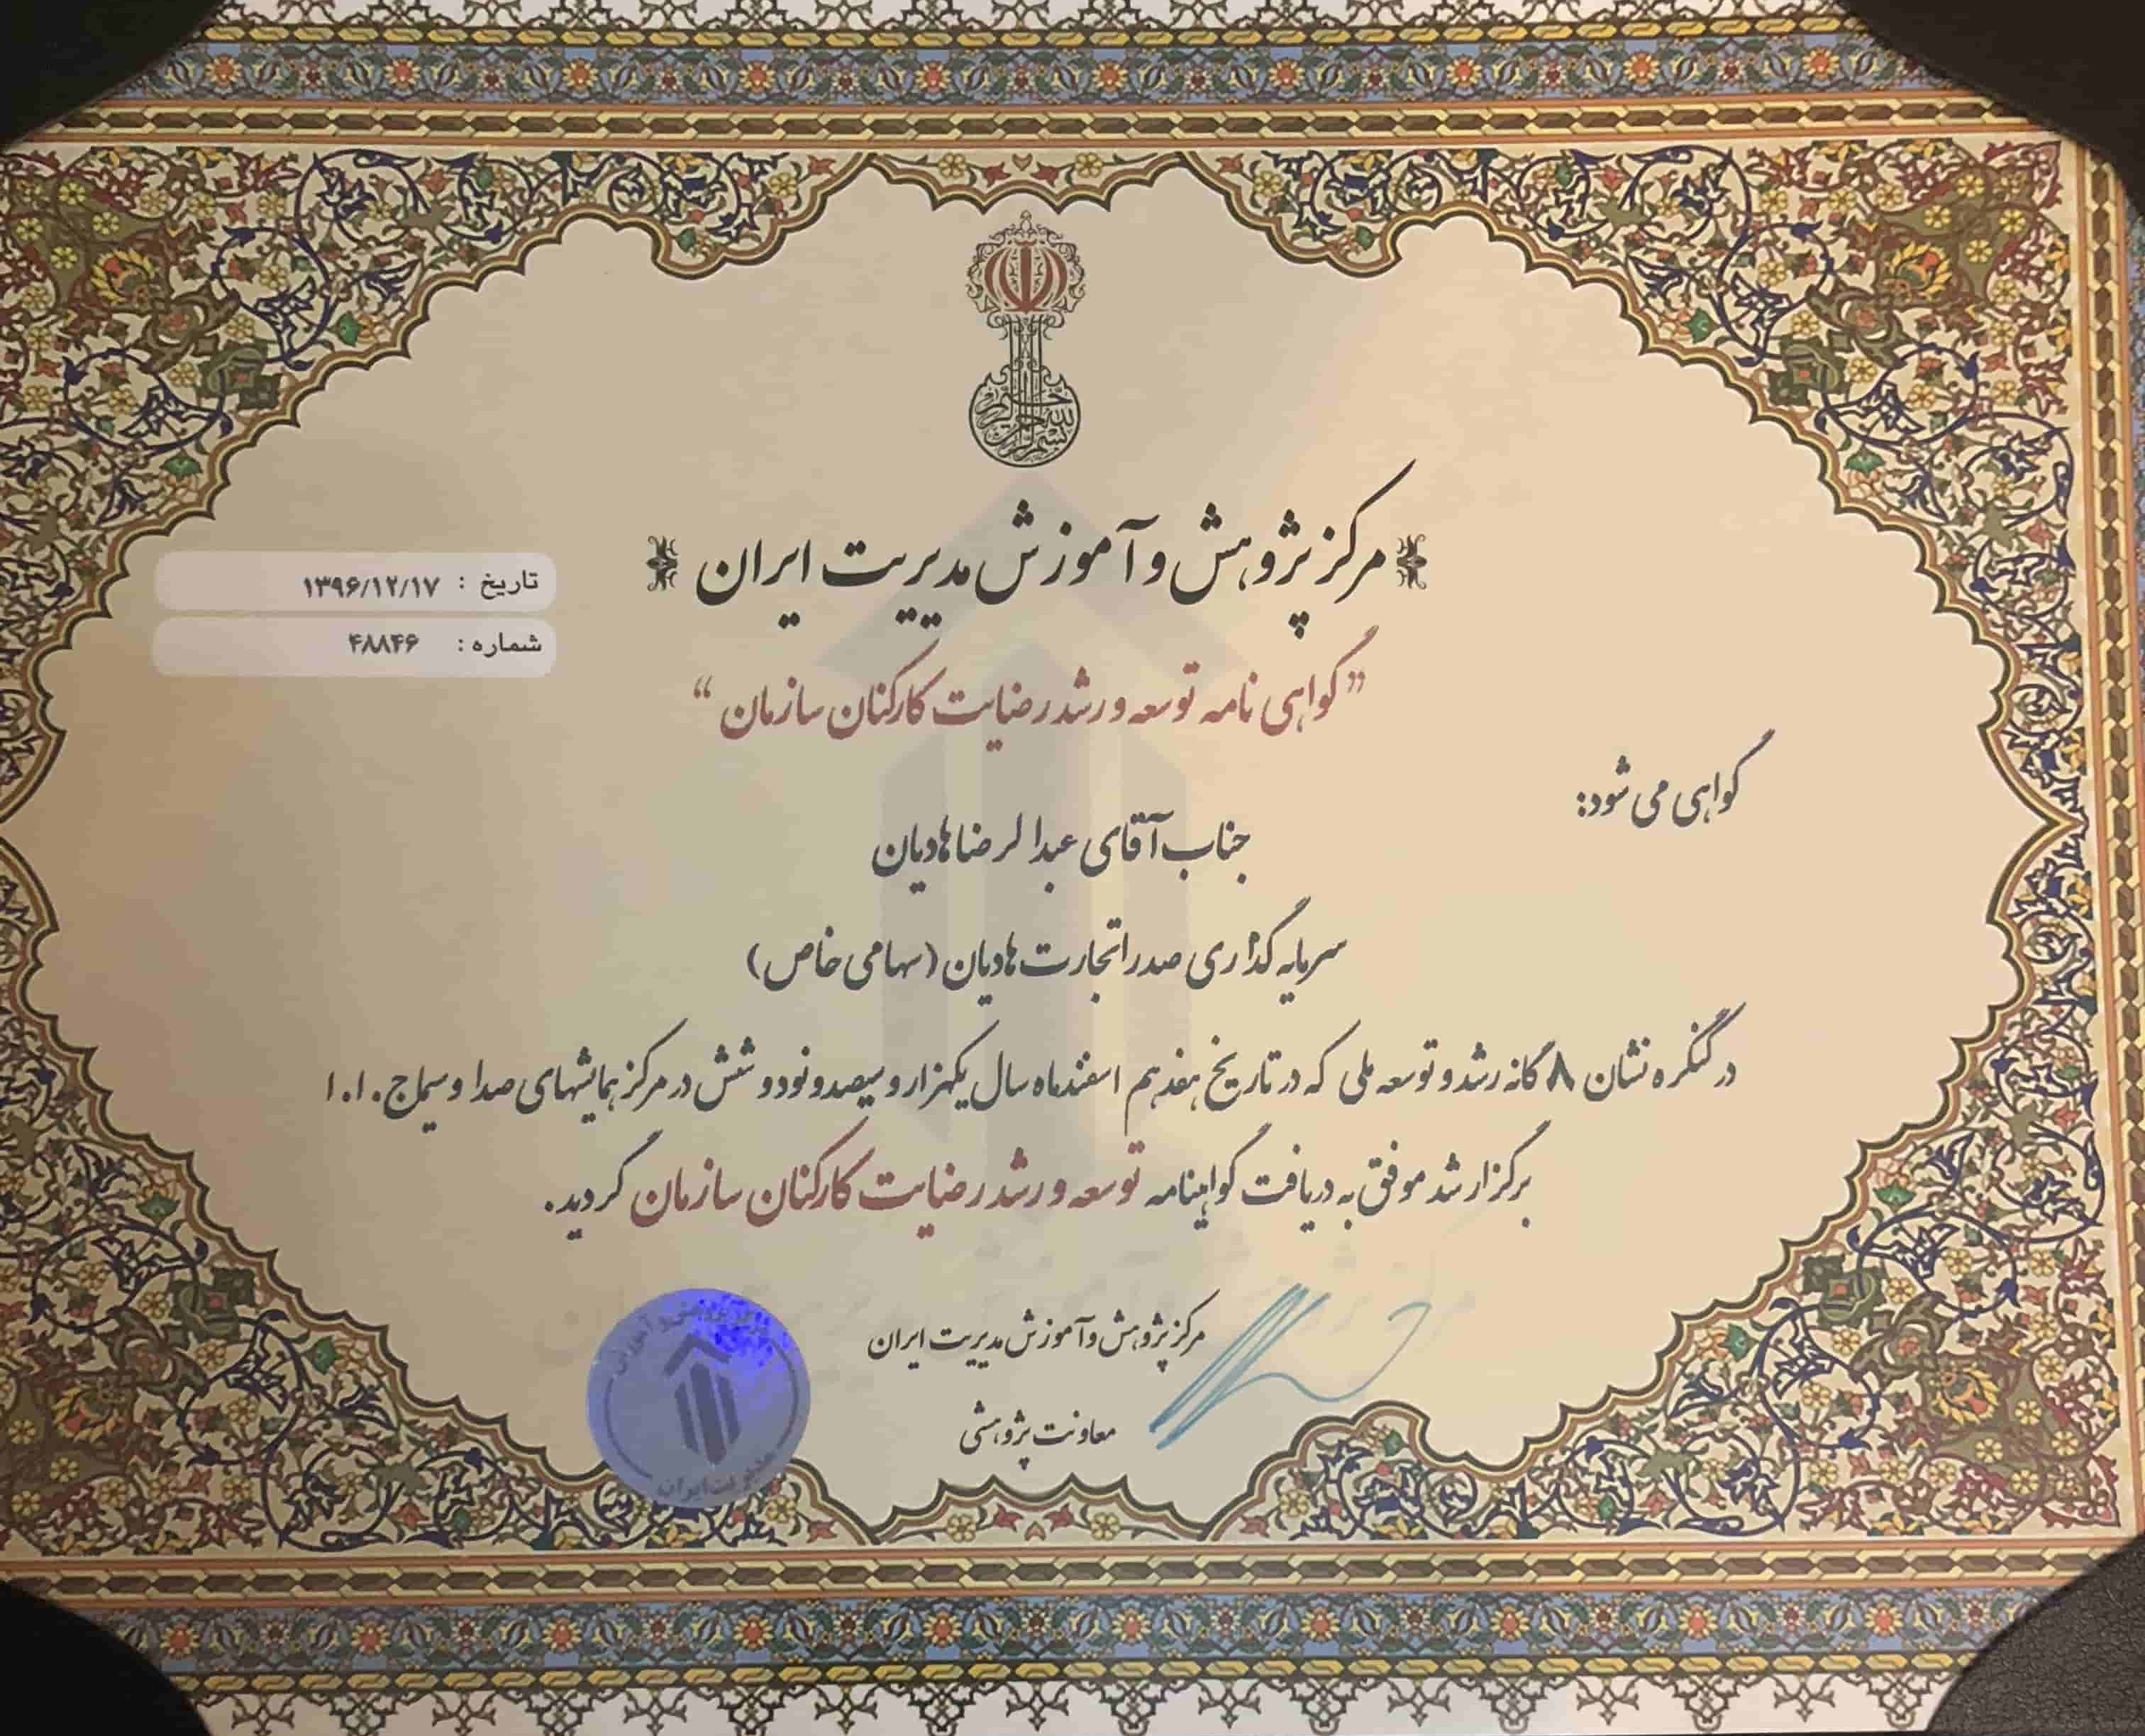 بسم الله الرحمن الرحیم
مرکز پژوهش و آموزش مدیریت ایران
تاریخ : ۱۳۹۶/۱۲/۱۷
شماره : ۴۸۸۴۶
”گواهی نامه توسعه و رشد رضایت کارکنان سازمان“
گواهی می شود:
جناب آقای عبدالرضا هادیان
سرمایه گذاری صدرا تجارت هادیان (سهامی خاص)
در کنگره نشان ۸ گانه رشد و توسعه ملی که در تاریخ هفدهم اسفندماه سال یکهزار و سیصد و نود و شش در مرکز همایشهای صدا و سیما ج.ا.ا
برگزار شد موفق به دریافت گواهینامه توسعه و رشد رضایت کارکنان سازمان گردید.
مرکز پژوهش و آموزش مدیریت ایران
معاونت پژوهشی
مدیریت ایران